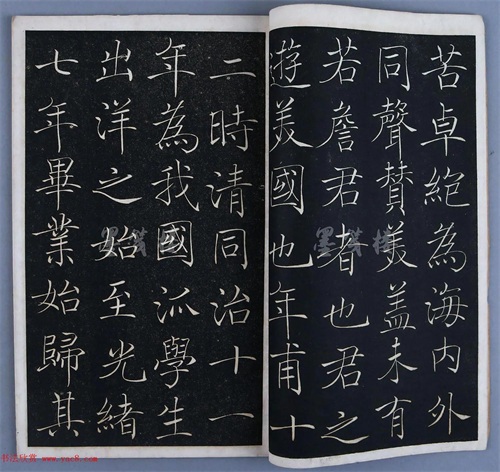 苦卓絕為海内外
同聲贊美盖未有
若詹君者也君之
遊美國也年甫十
二時清同治十一
年為我國派學生
出洋之始至光緒
七年畢業始歸其
书法欣赏 www.yac8.com